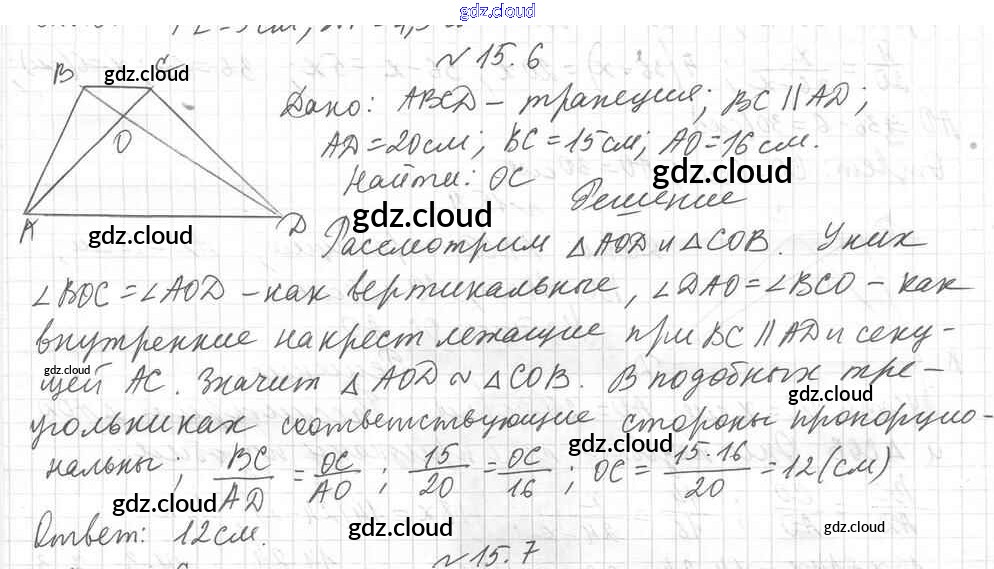 gdz.cloud
№ 15.6
B C
gdz.cloud
O
A D
gdz.cloud
Дано: ABCD – трапеция; BC || AD;
AD = 20 см; BC = 15 см; AO = 16 см.
Найти: OC
gdz.cloud
Решение
gdz.cloud
Рассмотрим △ AOD и △ COB. У них
∠BOC = ∠AOD – как вертикальные, ∠DAO = ∠BCO – как
внутренние накрест лежащие при BC || AD и секу-
gdz.cloud
щей AC. Значит △ AOD ~ △ COB. В подобных тре-
gdz.cloud
угольниках соответствующие стороны пропорцио-
gdz.cloud
нальны; BC/AD = OC/AO; 15/20 = OC/16; OC = 15·16/20 = 12 (см)
gdz.cloud
Ответ: 12 см.
gdz.cloud
gdz.cloud
№ 15.7